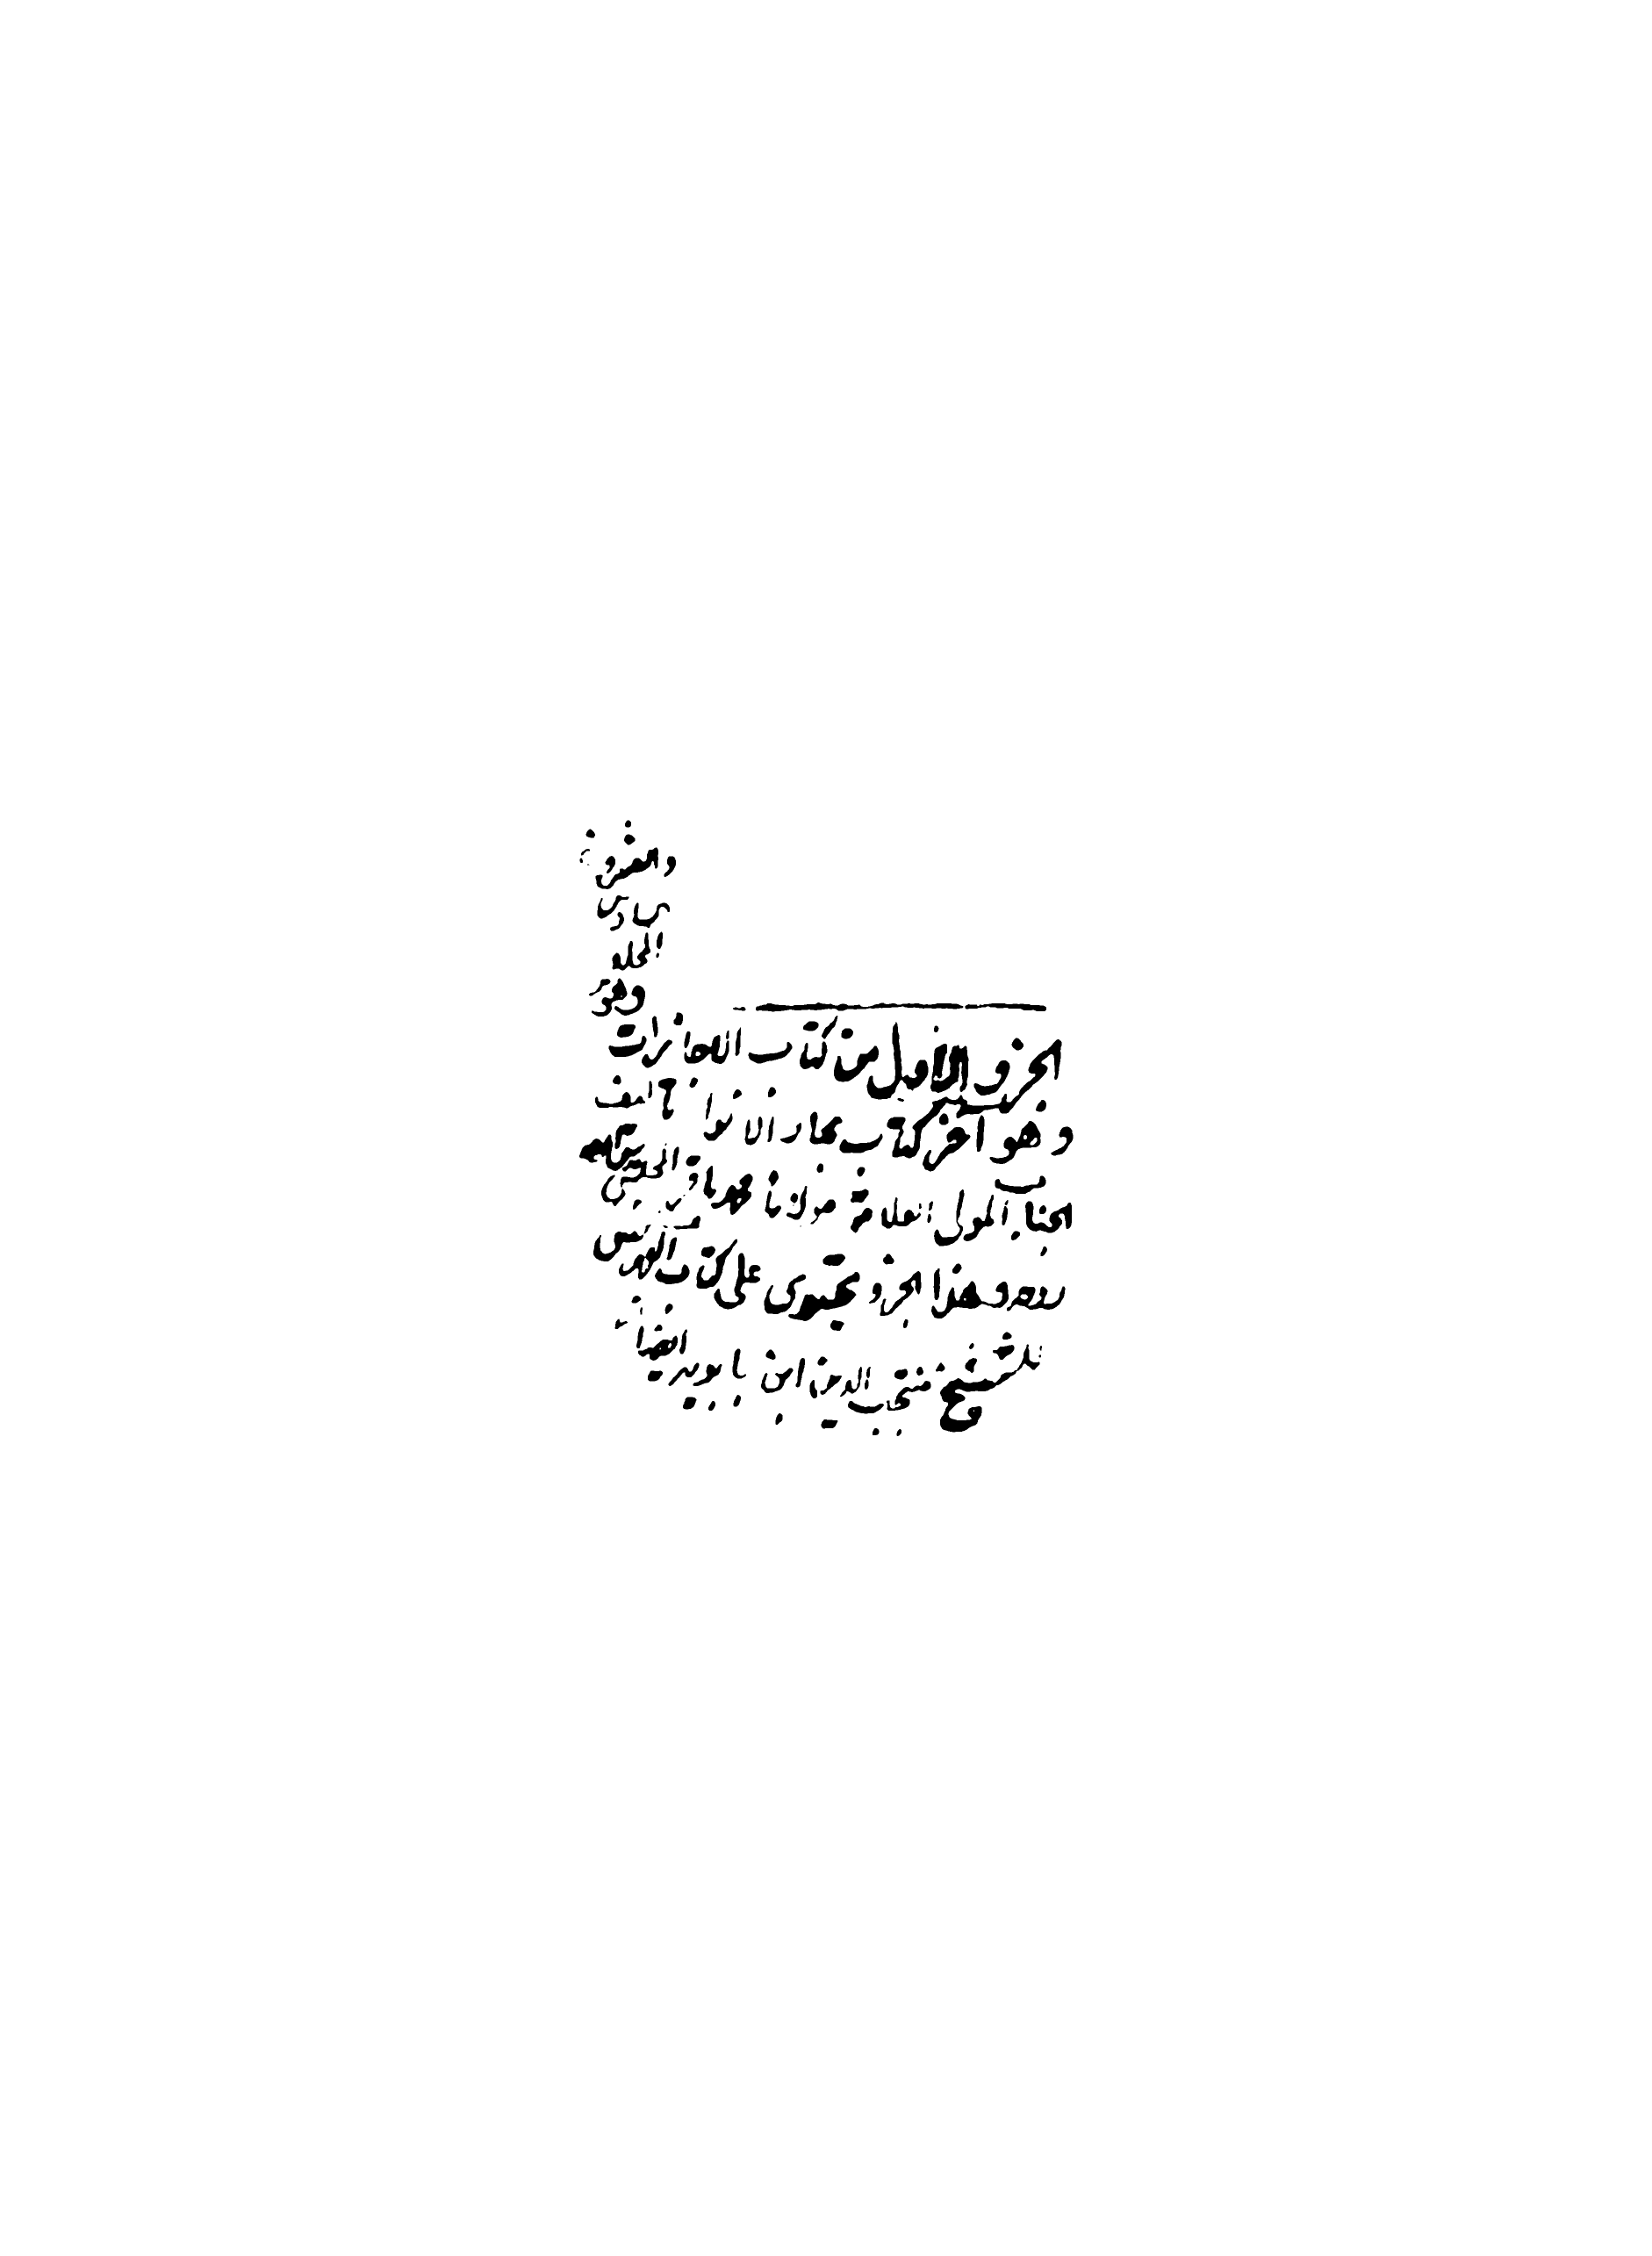 والعشرون
المجلد
وهو
الجزو الاول من كتاب الاجازات
وهو آخر كتاب بحار الانوار
الجناب المولى العلامة مولانا محمد باقر المجلسى
وهذا الجزو يحتوى على كتاب الفهرس
للشيخ منتجب الدين ابن بابويه ايضا